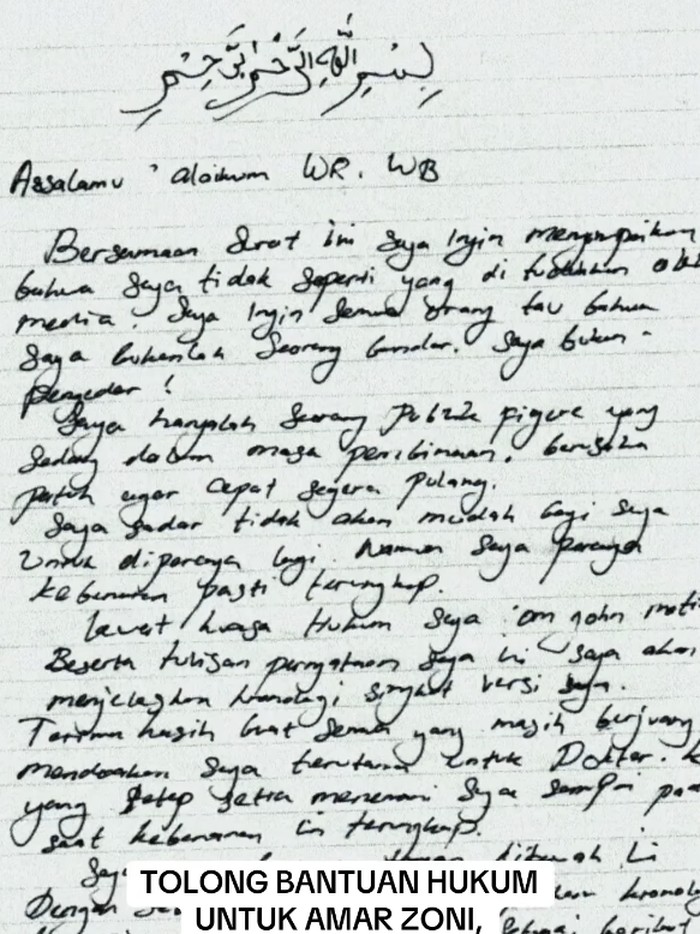 بسم الله الرحمن الرحيم
Assalamu 'alaikum WR. WB
Bersamaan Surat ini Saya Ingin menyampaikan
bahwa Saya tidak seperti yang di tuduhkan
media. Saya Ingin Semua orang tau bahwa
Saya bukanlah Seorang bandar. Saya bukan -
Pengedar !
Saya hanyalah Seorang Publik figure yang
Sedang dalam masa pembinaan. berusaha
patuh agar cepat segera pulang.
Saya sadar tidak akan mudah bagi saya
Untuk dipercaya lagi. Namun Saya percaya
kebenaran pasti terungkap.
Lewat kuasa Hukum Saya om john
Beserta tulisan pernyataan saya ini saya akan
menjelaskan kronologi singkat versi saya.
Terima kasih buat Semua yang masih berjuang
mendoakan Saya terutama untuk Dokter. K
yang tetap setia menemani Saya sampai pa
saat kebenaran ini terungkap.
Saya dibawah ini
Dengan
TOLONG BANTUAN HUKUM
UNTUK AMAR ZONI,